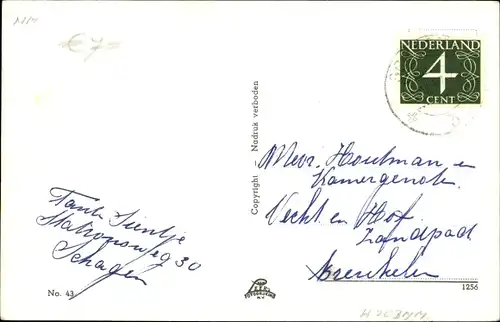 €7=
NEDERLAND
4
CENT
Copyright Nadruk verboden
Mevr. Houtman en
Kamergenoten.
Vecht en Hof.
Zandpad
Breukelen
Tante Sientje
Stationsweg 30
Schagen
No. 43
1256